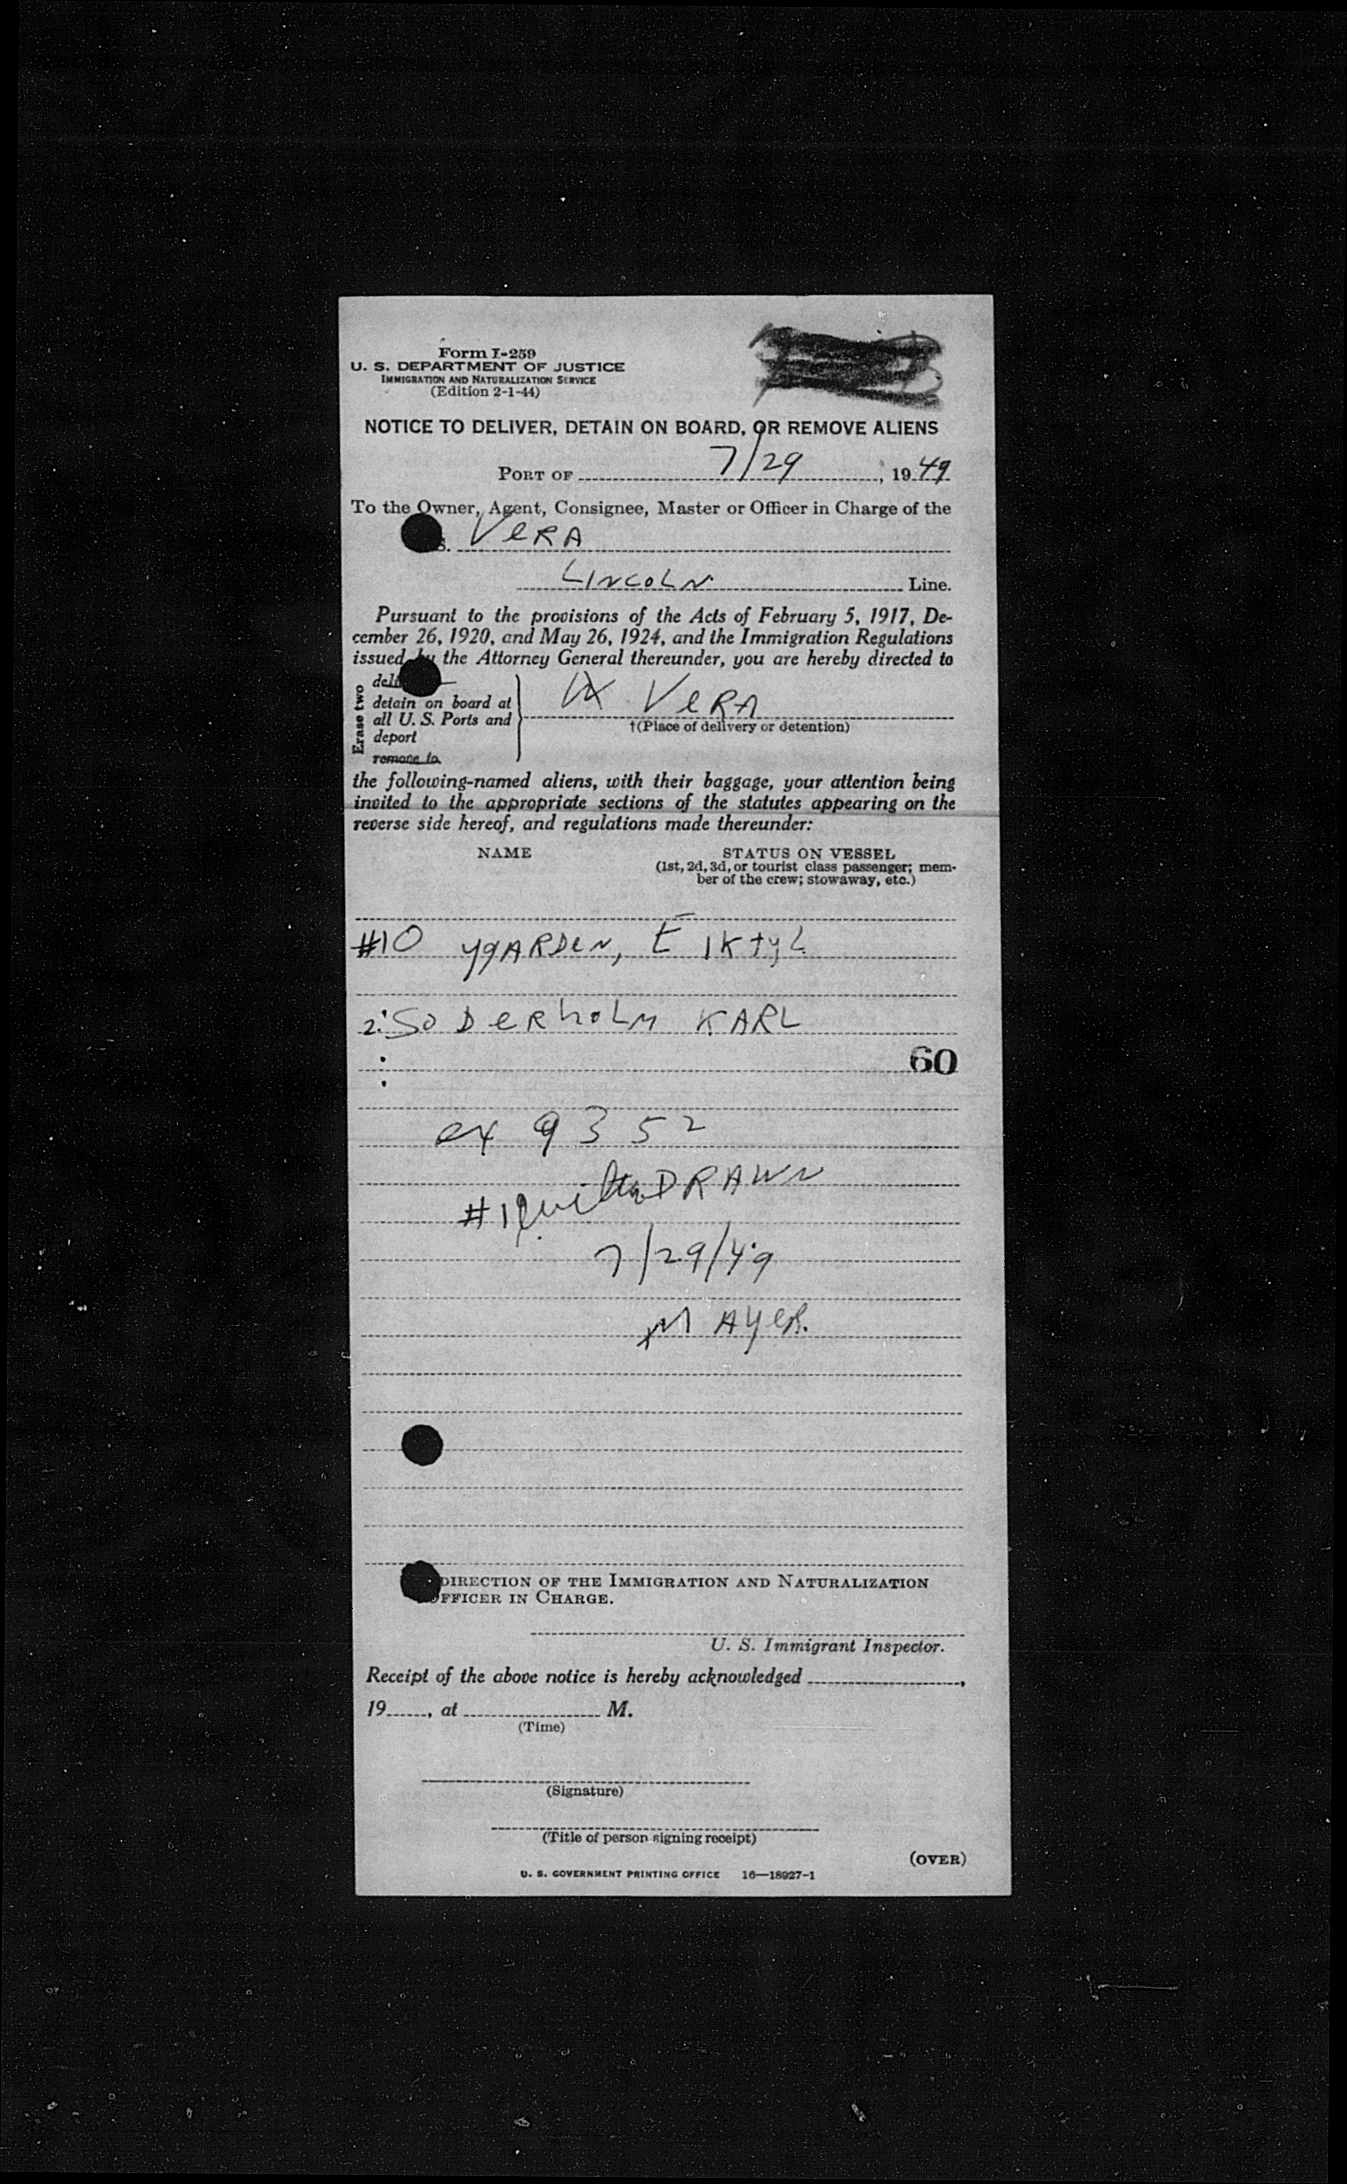 Form I-259
U. S. DEPARTMENT OF JUSTICE
IMMIGRATION AND NATURALIZATION SERVICE
(Edition 2-1-44)
NOTICE TO DELIVER, DETAIN ON BOARD, OR REMOVE ALIENS
PORT OF 7/29, 1949
To the Owner, Agent, Consignee, Master or Officer in Charge of the
S. VeRA
LINCOLN Line.
Pursuant to the provisions of the Acts of February 5, 1917, De-
cember 26, 1920, and May 26, 1924, and the Immigration Regulations
issued by the Attorney General thereunder, you are hereby directed to
Erase two
detain on board at
all U. S. Ports and
deport
remove to
VeRA
†(Place of delivery or detention)
the following-named aliens, with their baggage, your attention being
invited to the appropriate sections of the statutes appearing on the
reverse side hereof, and regulations made thereunder:
NAME STATUS ON VESSEL
(1st, 2d, 3d, or tourist class passenger; mem-
ber of the crew; stowaway, etc.)
#10 ygARDeN, E
2: SODeRhoLM KARL
60
9352
DRAWN
7/29/49
MAYeR.
DIRECTION OF THE IMMIGRATION AND NATURALIZATION
OFFICER IN CHARGE.
U. S. Immigrant Inspector.
Receipt of the above notice is hereby acknowledged ,
19 , at M.
(Time)
(Signature)
(Title of person signing receipt)
(OVER)
U. S. GOVERNMENT PRINTING OFFICE 16—18927-1